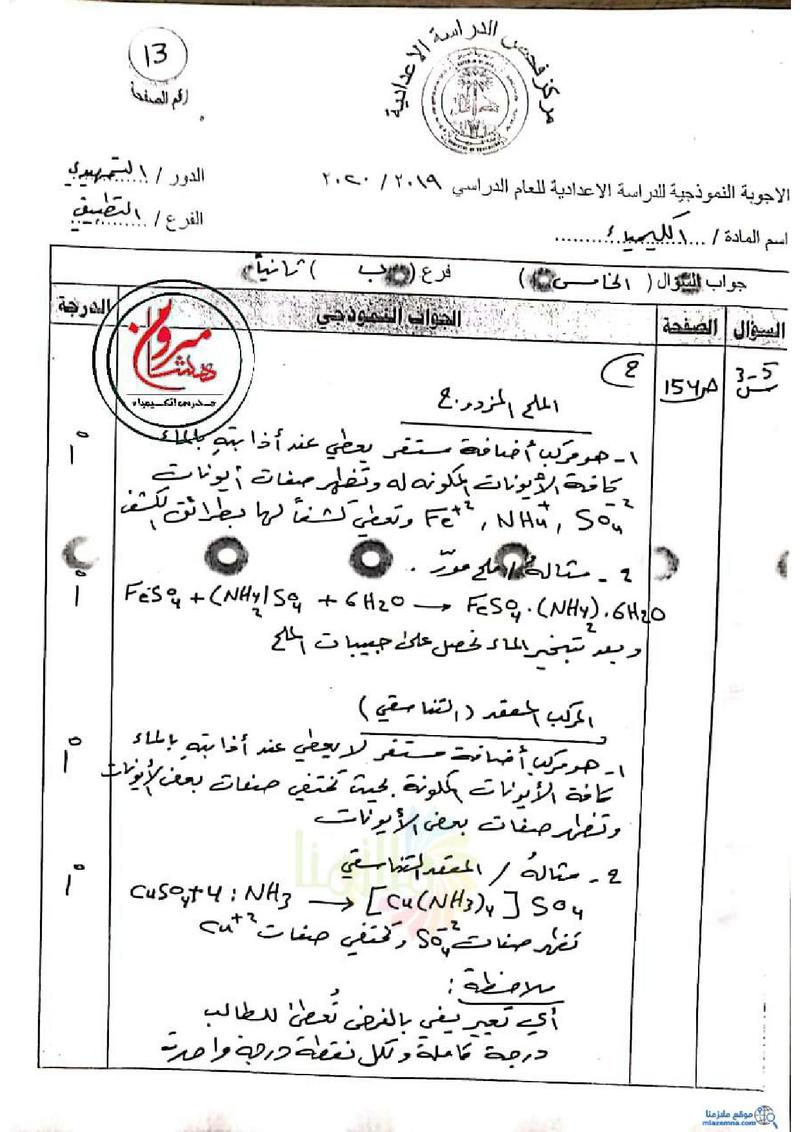 13
رقم الصفحة
مركز فحص الدراسة الاعدادية
الاجوبة النموذجية للدراسة الاعدادية للعام الدراسي ٢٠١٩ / ٢٠٢٠
الدور / التمهيدي
اسم المادة / الكيمياء
الفرع / التطبيقي
جواب السؤال ( الخامس ) فرع ( ب ) ثانياً
السؤال الصفحة الجواب النموذجي الدرجة
هشام
مدرس الكيمياء
س5-3
ص154
ج
الملح المزدوج
1- هو مركب أضافة مستقر يعطي عند أذابته بالماء
كافة الأيونات المكونه له وتظهر صفات أيونات
Fe+2 , NH4+ , SO4-2 وتعطي كشفاً لها بطرائق الكشف
2- مثاله / ملح مور .
FeSO4 + (NH4)2SO4 + 6H2O → FeSO4.(NH4)2.6H2O
وبعد تبخير الماء نحصل على حبيبات الملح
المركب المعقد ( التناسقي )
1- هو مركب أضافة مستقر لا يعطي عند أذابته بالماء
كافة الأيونات المكونة بحيث تختفي صفات بعض الأيونات
وتظهر صفات بعض الأيونات
2- مثاله / المعقد التناسقي
CuSO4+4:NH3 → [Cu(NH3)4]SO4
تظهر صفات SO4-2 وتختفي صفات Cu+2
ملاحظة :
أي تعبير يفي بالغرض تُعطى للطالب
درجة كاملة ولكل نقطة درجة واحدة
ملازمنا
موقع ملازمنا
mlazemna.com